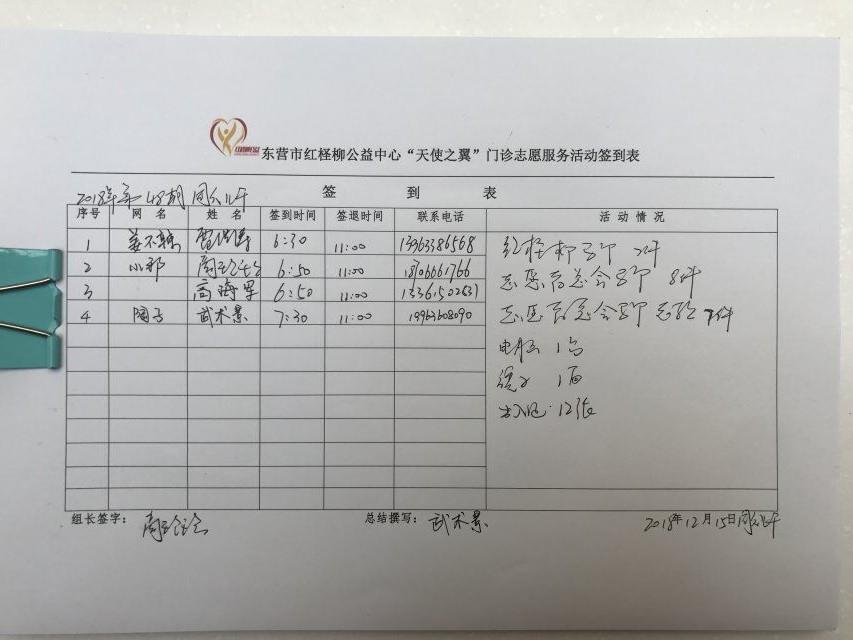 东营市红柽柳公益中心“天使之翼”门诊志愿服务活动签到表
2018年第48期 周六上午
签 到 表
序号 网 名 姓 名 签到时间 签退时间 联系电话 活 动 情 况
1 姜不辣 6:30 11:00 13963386568
2 小郑 6:50 11:00 18706661766
3 高海军 6:50 11:00 13361502631
4 陶子 武术景 7:30 11:00 19963608090
红柽柳马甲 2件
志愿者总会马甲 8件
志愿者总会马甲 7件
电压 1台
1面
出入证 12张
组长签字:
总结撰写: 武术景
2018年12月15日周六上午